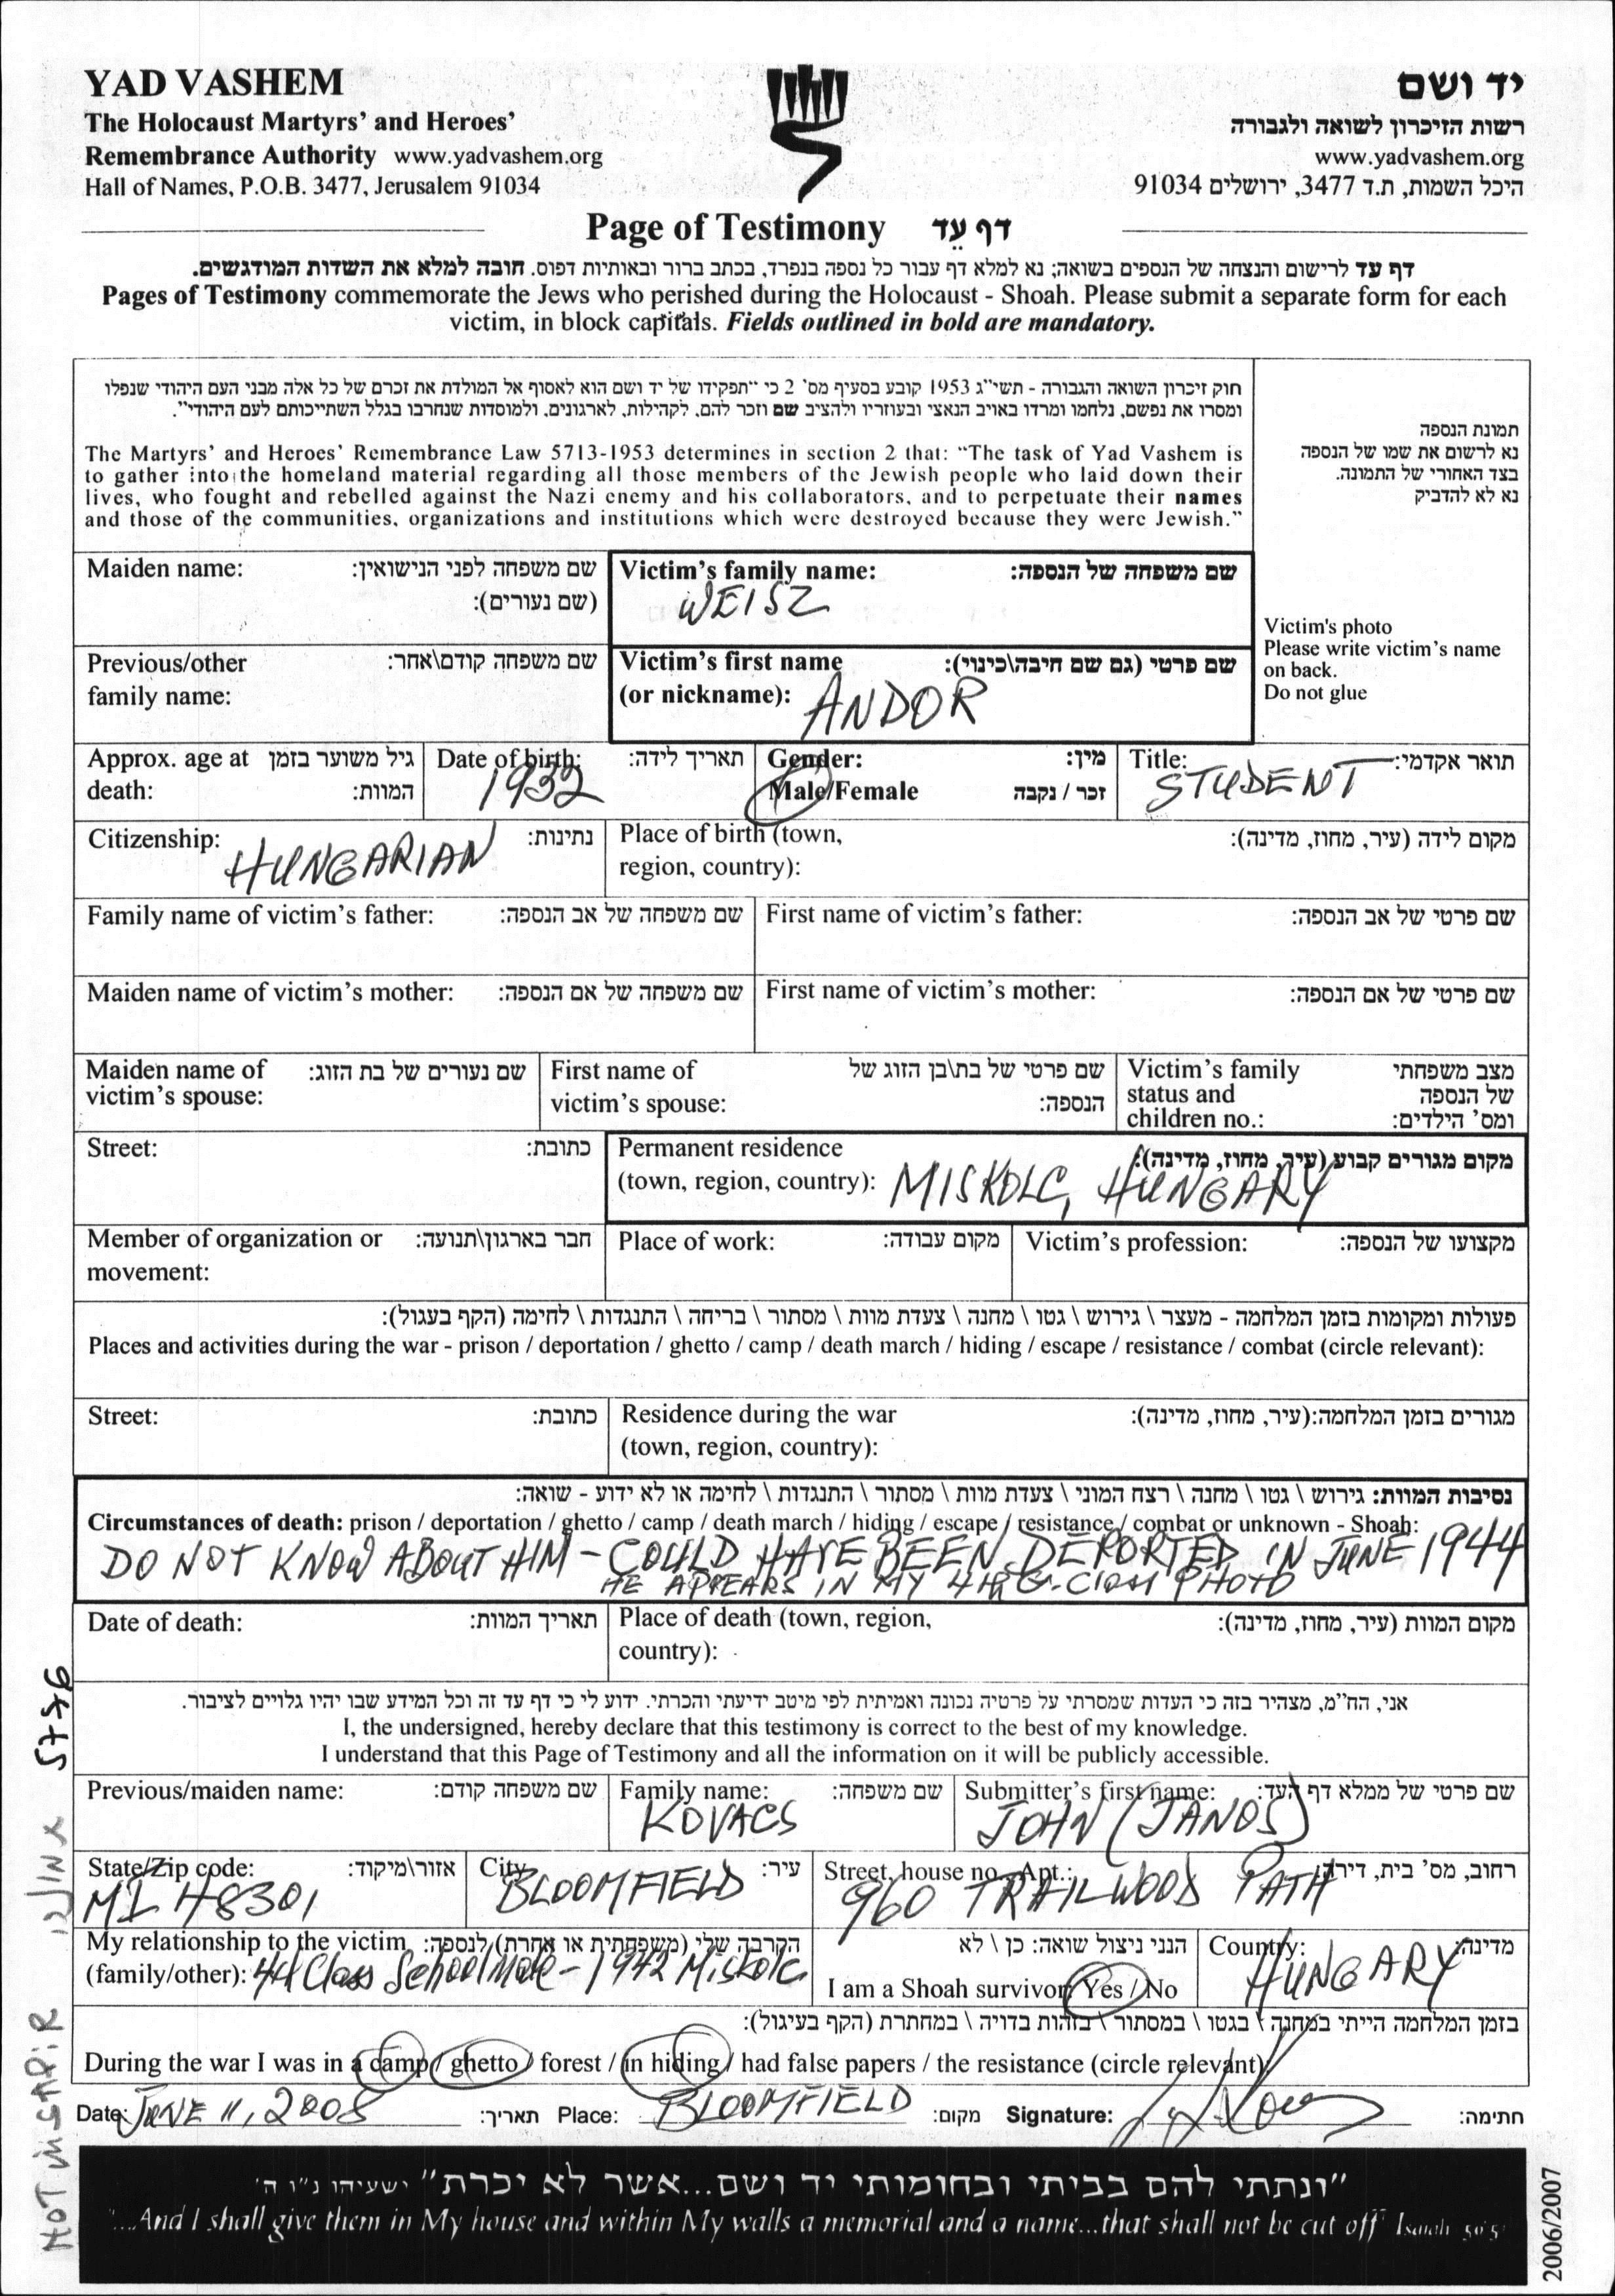 YAD VASHEM
The Holocaust Martyrs' and Heroes'
Remembrance Authority www.yadvashem.org
Hall of Names, P.O.B. 3477, Jerusalem 91034
יד ושם
רשות הזיכרון לשואה ולגבורה
www.yadvashem.org
היכל השמות, ת.ד 3477, ירושלים 91034
Page of Testimony דף עֵד
דף עד לרישום והנצחה של הנספים בשואה; נא למלא דף עבור כל נספה בנפרד, בכתב ברור ובאותיות דפוס. חובה למלא את השדות המודגשים.
Pages of Testimony commemorate the Jews who perished during the Holocaust - Shoah. Please submit a separate form for each
victim, in block capitals. Fields outlined in bold are mandatory.
חוק זיכרון השואה והגבורה - תשי"ג 1953 קובע בסעיף מס' 2 כי "תפקידו של יד ושם הוא לאסוף אל המולדת את זכרם של כל אלה מבני העם היהודי שנפלו
ומסרו את נפשם, נלחמו ומרדו באויב הנאצי ובעוזריו ולהציב שם וזכר להם, לקהילות, לארגונים, ולמוסדות שנחרבו בגלל השתייכותם לעם היהודי".
The Martyrs' and Heroes' Remembrance Law 5713-1953 determines in section 2 that: "The task of Yad Vashem is
to gather into the homeland material regarding all those members of the Jewish people who laid down their
lives, who fought and rebelled against the Nazi enemy and his collaborators, and to perpetuate their names
and those of the communities, organizations and institutions which were destroyed because they were Jewish."
תמונת הנספה
נא לרשום את שמו של הנספה
בצד האחורי של התמונה.
נא לא להדביק
Victim's photo
Please write victim's name
on back.
Do not glue
Maiden name: שם משפחה לפני הנישואין:
(שם נעורים):
Victim's family name: שם משפחה של הנספה:
WEISZ
Previous/other שם משפחה קודם\אחר:
family name:
Victim's first name שם פרטי (גם שם חיבה\כינוי):
(or nickname): ANDOR
Approx. age at גיל משוער בזמן
death: המוות:
Date of birth: תאריך לידה:
1932
Gender: מין:
Male/Female זכר / נקבה
Title: תואר אקדמי:
STUDENT
Citizenship: נתינות:
HUNGARIAN
Place of birth (town, מקום לידה (עיר, מחוז, מדינה):
region, country):
Family name of victim's father: שם משפחה של אב הנספה:
First name of victim's father: שם פרטי של אב הנספה:
Maiden name of victim's mother: שם משפחה של אם הנספה:
First name of victim's mother: שם פרטי של אם הנספה:
Maiden name of שם נעורים של בת הזוג:
victim's spouse:
First name of שם פרטי של בת\בן הזוג של
victim's spouse: הנספה:
Victim's family מצב משפחתי
status and של הנספה
children no.: ומס' הילדים:
Street: כתובת:
Permanent residence מקום מגורים קבוע (עיר, מחוז, מדינה):
(town, region, country): MISKOLC, HUNGARY
Member of organization or חבר בארגון\תנועה:
movement:
Place of work: מקום עבודה:
Victim's profession: מקצועו של הנספה:
פעולות ומקומות בזמן המלחמה - מעצר \ גירוש \ גטו \ מחנה \ צעדת מוות \ מסתור \ בריחה \ התנגדות \ לחימה (הקף בעגול):
Places and activities during the war - prison / deportation / ghetto / camp / death march / hiding / escape / resistance / combat (circle relevant):
Street: כתובת:
Residence during the war מגורים בזמן המלחמה:(עיר, מחוז, מדינה):
(town, region, country):
נסיבות המוות: גירוש \ גטו \ מחנה \ רצח המוני \ צעדת מוות \ מסתור \ התנגדות \ לחימה או לא ידוע - שואה:
Circumstances of death: prison / deportation / ghetto / camp / death march / hiding / escape / resistance / combat or unknown - Shoah:
DO NOT KNOW ABOUT HIM - COULD HAVE BEEN DEPORTED IN JUNE 1944
HE APPEARS IN MY 4th G-Class PHOTO
Date of death: תאריך המוות:
Place of death (town, region, מקום המוות (עיר, מחוז, מדינה):
country):
אני, הח"מ, מצהיר בזה כי העדות שמסרתי על פרטיה נכונה ואמיתית לפי מיטב ידיעתי והכרתי. ידוע לי כי דף עד זה וכל המידע שבו יהיו גלויים לציבור.
I, the undersigned, hereby declare that this testimony is correct to the best of my knowledge.
I understand that this Page of Testimony and all the information on it will be publicly accessible.
Previous/maiden name: שם משפחה קודם:
Family name: שם משפחה:
KOVACS
Submitter's first name: שם פרטי של ממלא דף העד:
JOHN (JANOS)
State/Zip code: אזור\מיקוד:
MI 48301
City: עיר:
BLOOMFIELD
Street, house no., Apt.: רחוב, מס' בית, דירה:
960 TRAILWOOD PATH
My relationship to the victim הקרבה שלי (משפחתית או אחרת) לנספה:
(family/other): 4th Class Schoolmate - 1942 Miskolc
הנני ניצול שואה: כן \ לא
I am a Shoah survivor: Yes / No
Country: מדינה:
HUNGARY
בזמן המלחמה הייתי במחנה \ בגטו \ במסתור \ בזהות בדויה \ במחתרת (הקף בעיגול):
During the war I was in a camp / ghetto / forest / in hiding / had false papers / the resistance (circle relevant)
Date: JUNE 11, 2008 תאריך: Place: BLOOMFIELD מקום: Signature: חתימה:
"ונתתי להם בביתי ובחומותי יד ושם...אשר לא יכרת" ישעיהו נ"ו ה'
"...And I shall give them in My house and within My walls a memorial and a name...that shall not be cut off" Isaiah 56:5
2006/2007
NOT IN STAPIR
5776